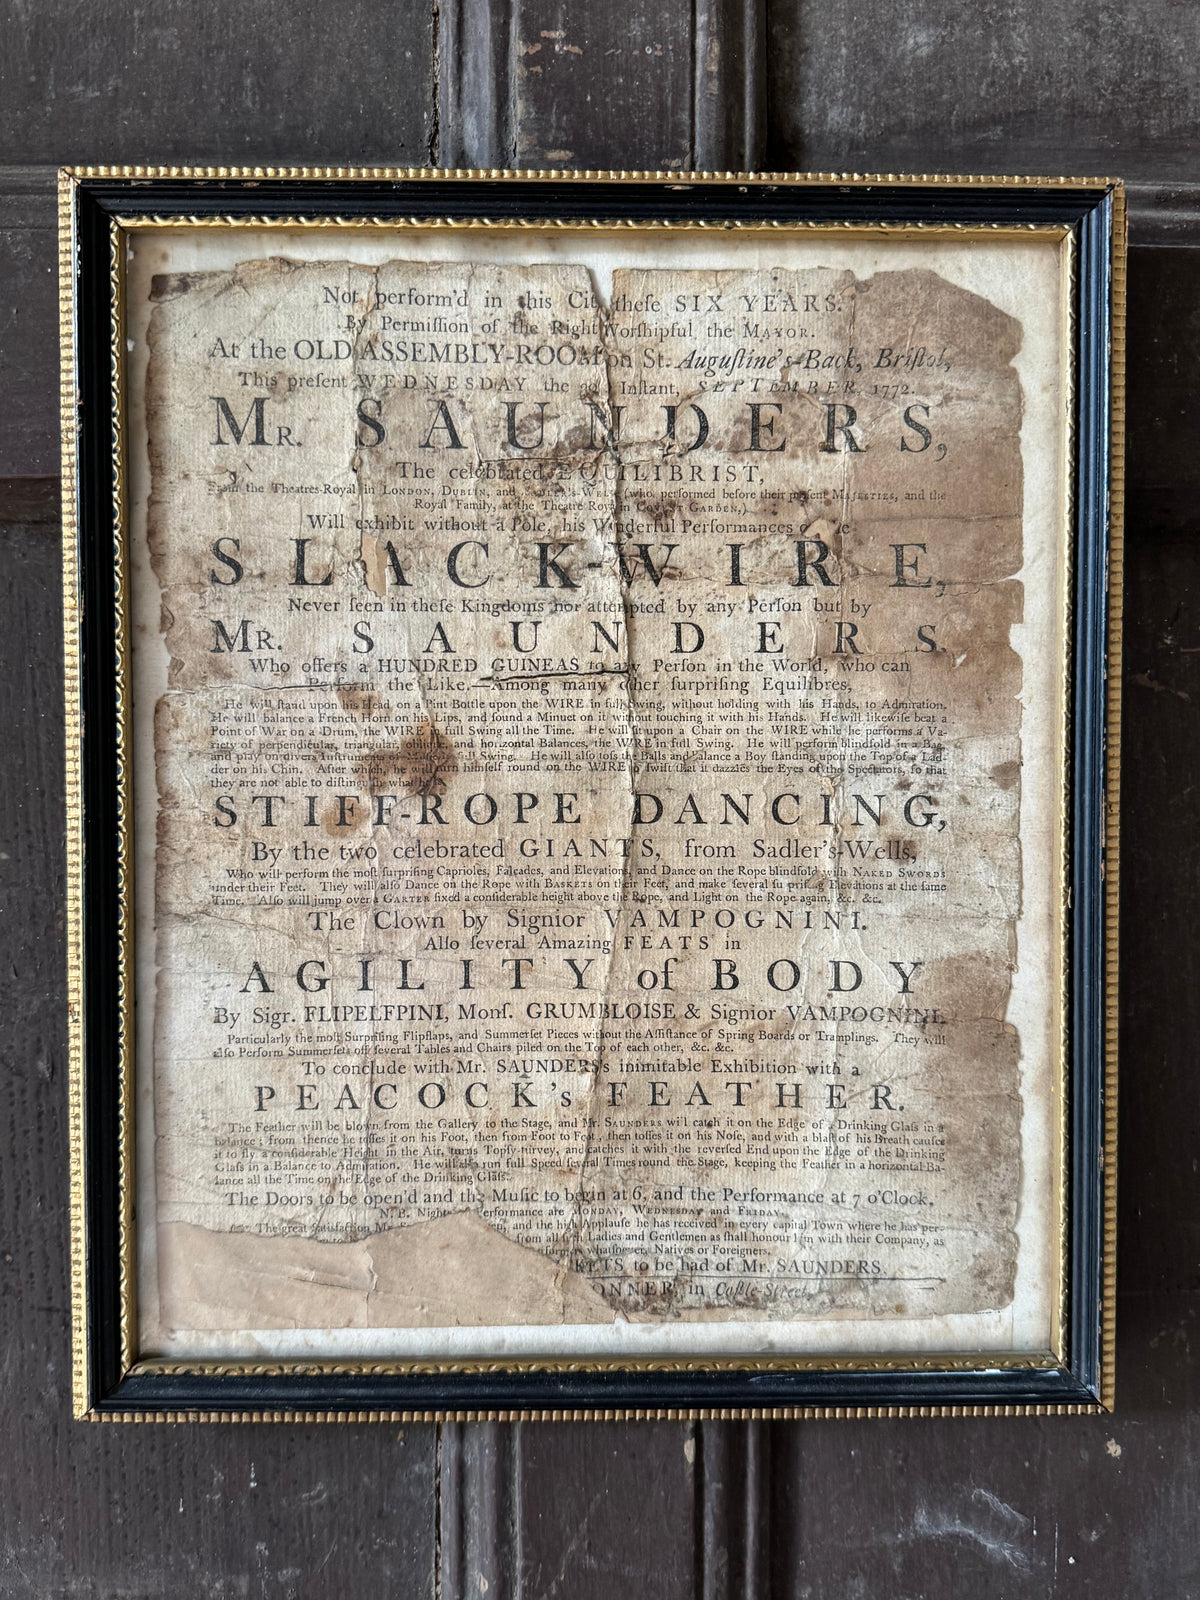 Not perform'd in this Cit theſe SIX YEARS.
By Permiſſion of the Right Worſhipful the MAYOR.
At the OLD ASSEMBLY-ROOM on St. Auguſtine's-Back, Briſtol,
This preſent WEDNESDAY the Inſtant, SEPTEMBER, 1772.
MR. SAUNDERS,
The celebrated EQUILIBRIST,
From the Theatres-Royal in LONDON, DUBLIN, and SADLER'S-WELLS (who performed before their preſent MAJESTIES, and the
Royal Family, at the Theatre Royal in COVENT GARDEN,)
Will exhibit without a Pole, his Wonderful Performances
SLACK-WIRE,
Never ſeen in theſe Kingdoms nor attempted by any Perſon but by
MR. SAUNDERS.
Who offers a HUNDRED GUINEAS to any Perſon in the World, who can
Perform the Like.—Among many other ſurpriſing Equilibres,
He will ſtand upon his Head on a Pint Bottle upon the WIRE in full Swing, without holding with his Hands, to Admiration.
He will balance a French Horn on his Lips, and ſound a Minuet on it without touching it with his Hands. He will likewiſe beat a
Point of War on a Drum, the WIRE full Swing all the Time. He will ſit upon a Chair on the WIRE while he performs a Va-
riety of perpendicular, triangular, oblique, and horizontal Balances, the WIRE in full Swing. He will perform blindfold in a Bag,
and play on divers Inſtruments of Muſic full Swing. He will alſo toſs the Balls and Balance a Boy ſtanding upon the Top of a Lad-
der on his Chin. After which, he will turn himſelf round on the WIRE ſo ſwift that it dazzles the Eyes of the Spectators, ſo that
they are not able to diſtinguiſh what he is.
STIFF-ROPE DANCING,
By the two celebrated GIANTS, from Sadler's-Wells,
Who will perform the moſt ſurpriſing Caprioles, Falcades, and Elevations, and Dance on the Rope blindfold with NAKED SWORDS
under their Feet. They will alſo Dance on the Rope with BASKETS on their Feet, and make ſeveral ſurpriſing Elevations at the ſame
Time. Alſo will jump over a GARTER fixed a conſiderable height above the Rope, and Light on the Rope again, &c. &c.
The Clown by Signior VAMPOGNINI.
Alſo ſeveral Amazing FEATS in
AGILITY of BODY
By Sigr. FLIPELFPINI, Monſ. GRUMBLOISE & Signior VAMPOGNINI.
Particularly the moſt Surpriſing Flipflaps, and Summerſet Pieces without the Aſſiſtance of Spring Boards or Tramplings. They will
alſo Perform Summerſets off ſeveral Tables and Chairs piled on the Top of each other, &c. &c.
To conclude with Mr. SAUNDERS's inimitable Exhibition with a
PEACOCK's FEATHER.
The Feather will be blown from the Gallery to the Stage, and Mr. SAUNDERS will catch it on the Edge of a Drinking Glaſs in a
balance; from thence he toſſes it on his Foot, then from Foot to Foot, then toſſes it on his Noſe, and with a blaſt of his Breath cauſes
it to fly a conſiderable Height in the Air, turns Topſy-turvey, and catches it with the reverſed End upon the Edge of the Drinking
Glaſs in a Balance to Admiration. He will alſo run full Speed ſeveral Times round the Stage, keeping the Feather in a horizontal Ba-
lance all the Time on the Edge of the Drinking Glaſs.
The Doors to be open'd and the Muſic to begin at 6, and the Performance at 7 o'Clock.
N. B. Nights of Performance are MONDAY, WEDNESDAY and FRIDAY.
The great Satisfaction Mr. and the high Applauſe he has received in every capital Town where he has per-
from all ſuch Ladies and Gentlemen as ſhall honour him with their Company, as
whatſoever, Natives or Foreigners.
KETS to be had of Mr. SAUNDERS.
ONNER in Caſtle-Street.